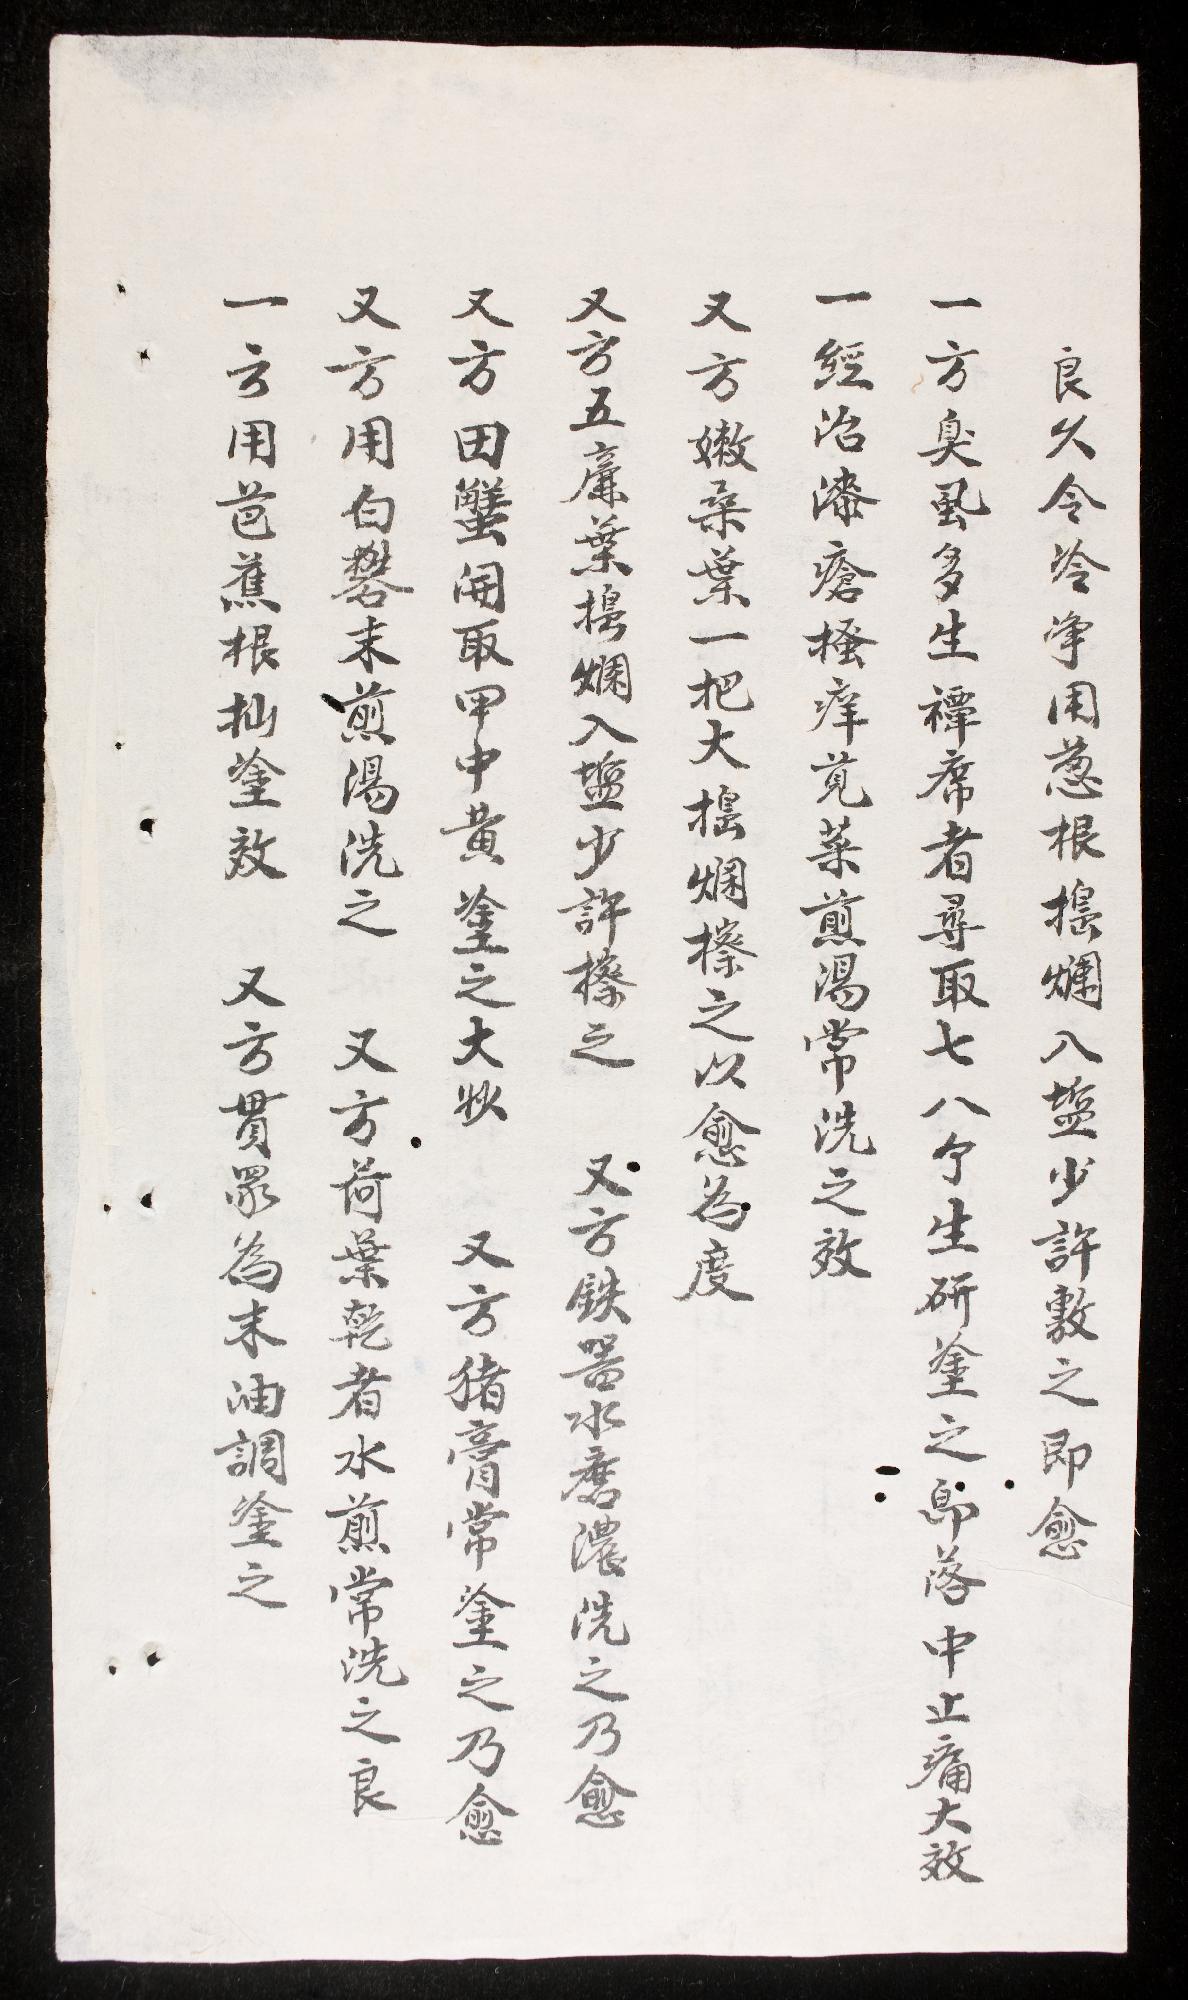 良久令冷净用葱根搗爛入塩少許敷之即愈
一方臭虱多生禫席者尋取七八个生研塗之即落中止痛大效
一經治漆瘡搔痒莧菜煎湯常洗之效
又方嫩桑葉一把大搗爛擦之以愈為度
又方五廉葉搗爛入塩少許擦之　又方鉄噐水磨濃洗之乃愈
又方田蟹開取甲中黄塗之大妙　又方猪膏常塗之乃愈
又方用白礬末煎湯洗之　又方荷葉乾者水煎常洗之良
一方用芭蕉根拙塗效　又方貫眾為末油調塗之